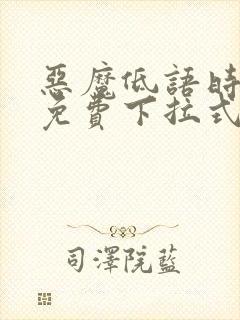 惡魔低語時
免費下拉式
司澤院藍